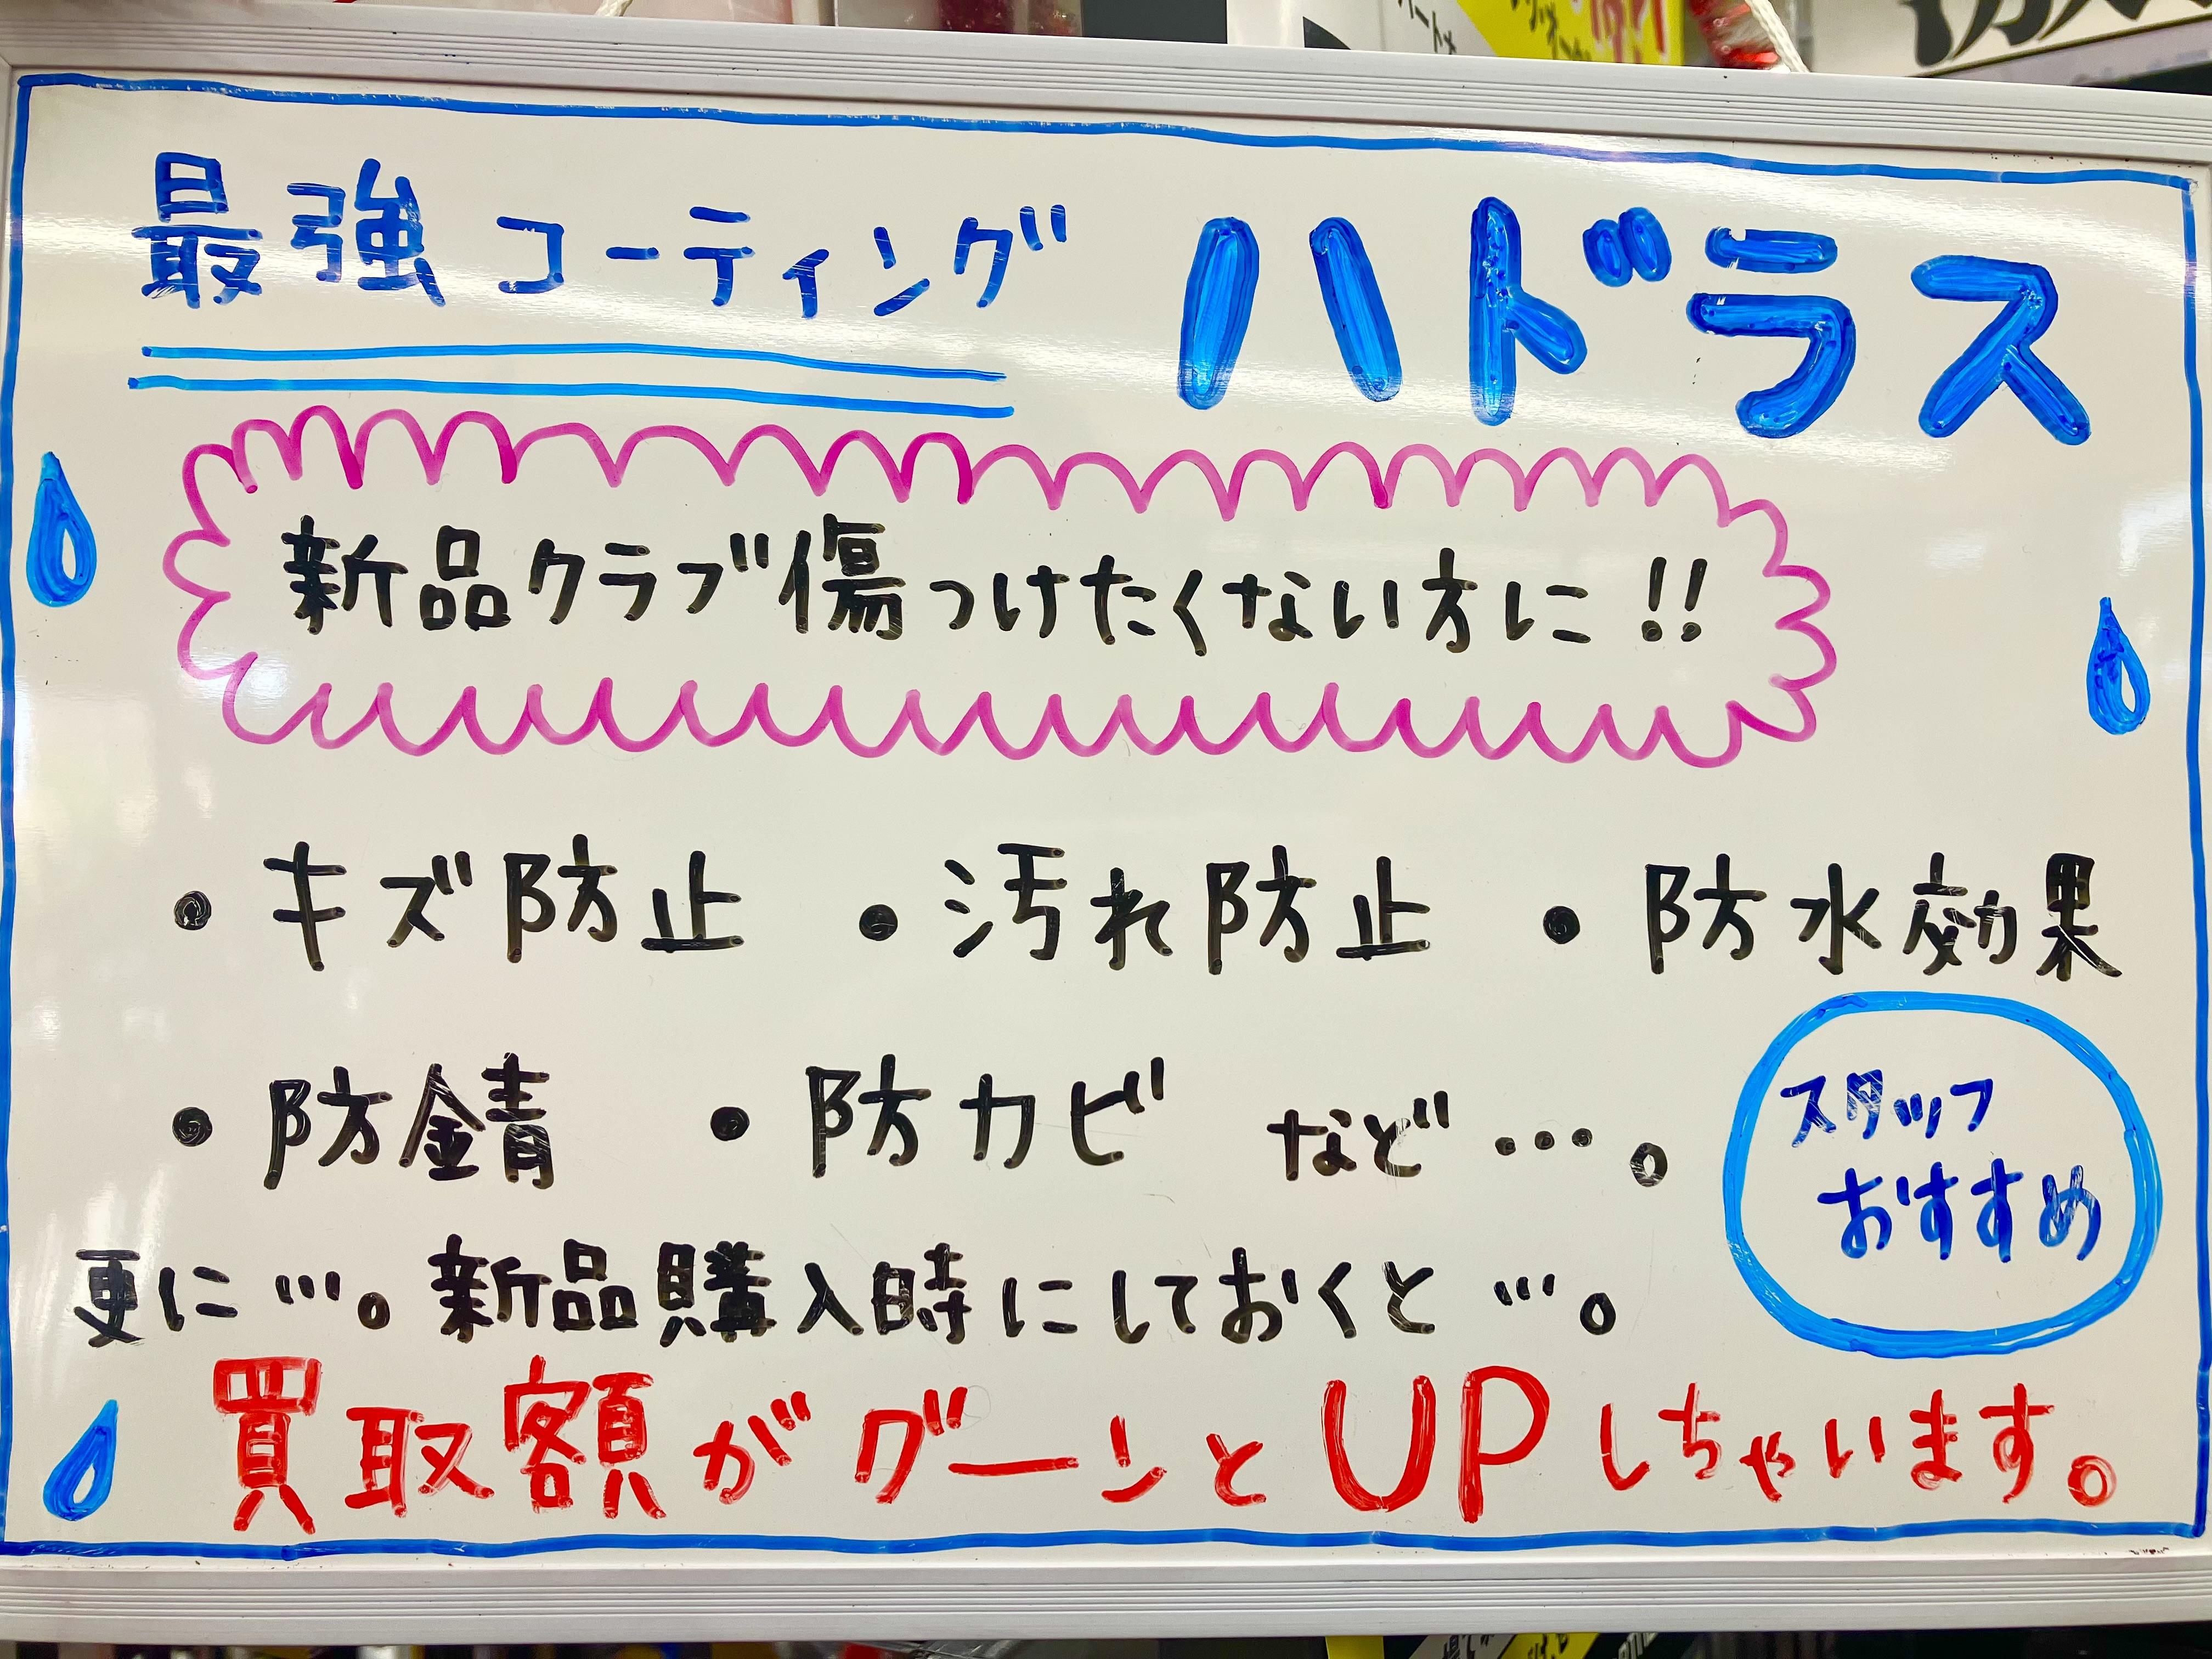 最強コーティング ハドラス
新品クラブ傷つけたくない方に!!
・キズ防止 ・汚れ防止 ・防水効果
・防錆 ・防カビ など…。
スタッフ
おすすめ
更に…。新品購入時にしておくと…。
買取額がグーンとUPしちゃいます。